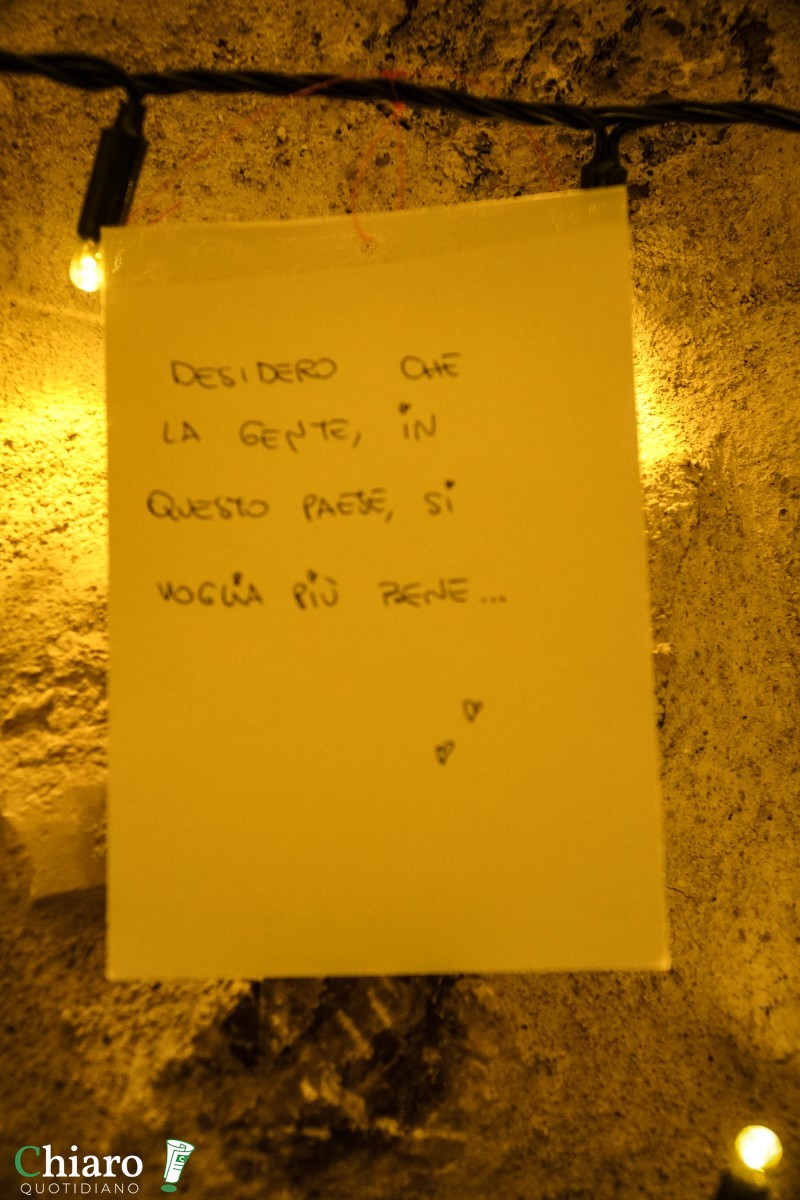 DESIDERO CHE
LA GENTE, IN
QUESTO PAESE, SI
VOGLIA PIÙ BENE...
Chiaro
QUOTIDIANO